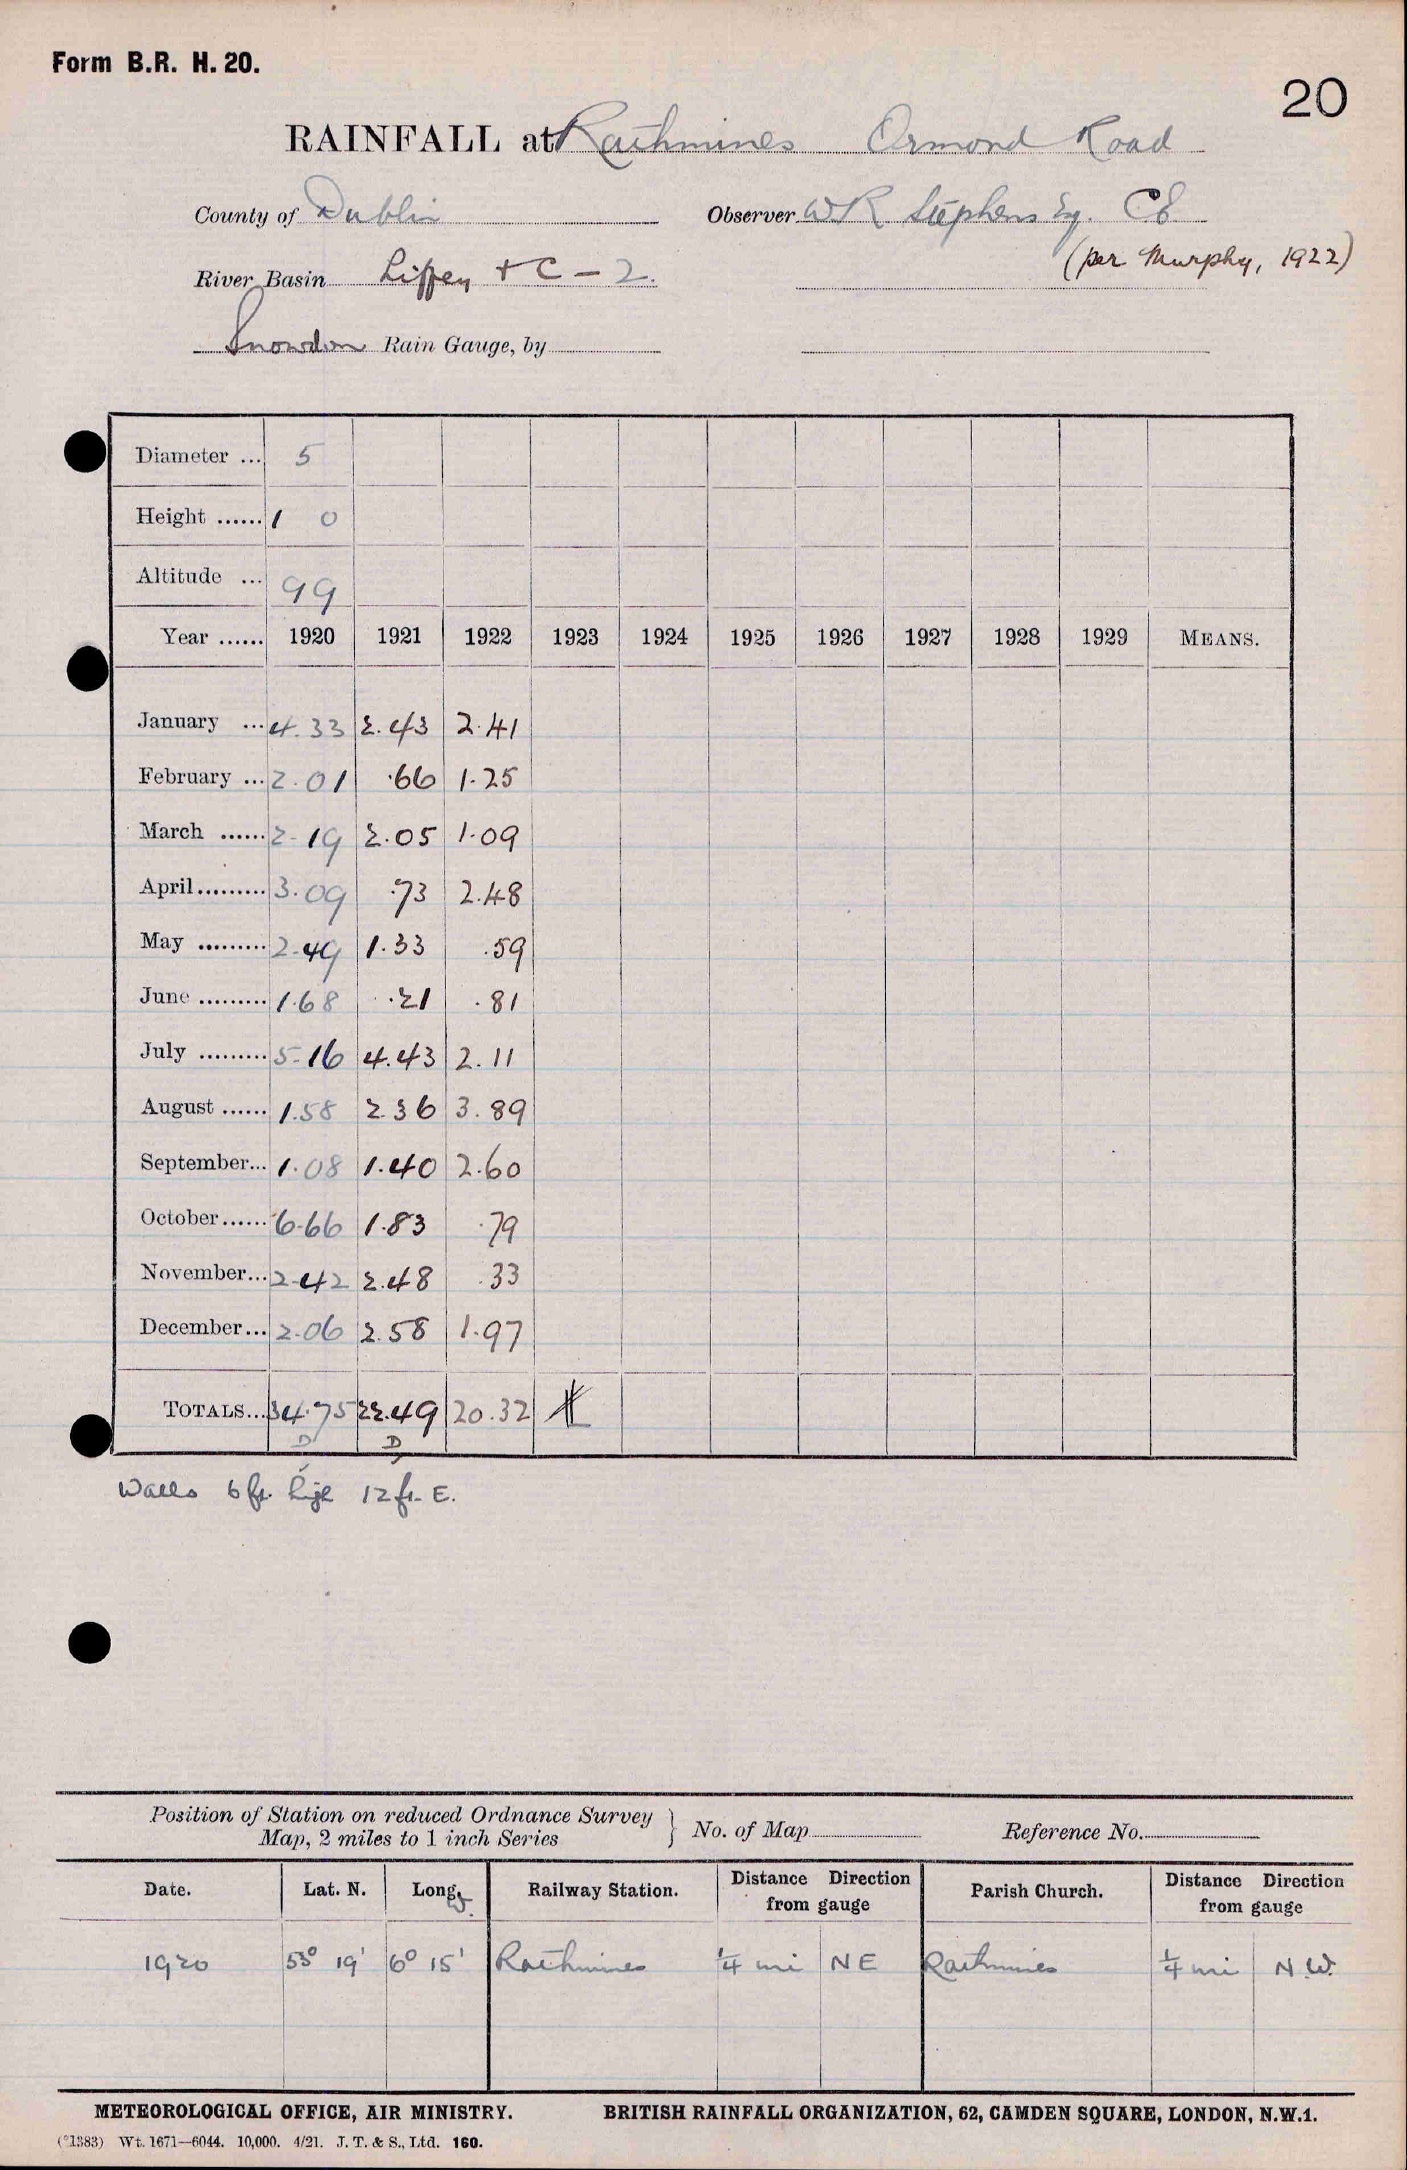 Form B.R. H. 20.
20
RAINFALL at Rathmines Ormond Road
County of Dublin Observer W R Stephens Esq. CE
(per Murphy, 1922)
River Basin Liffey + C - 2.
Snowdon Rain Gauge, by
Diameter ... 5
Height ...... 1 0
Altitude ... 99
Year ...... 1920 1921 1922 1923 1924 1925 1926 1927 1928 1929 MEANS.
January ... 4.33 2.43 2.41
February ... 2.01 .66 1.25
March ...... 2.19 2.05 1.09
April......... 3.09 .73 2.48
May ......... 2.49 1.33 .59
June ......... 1.68 .21 .81
July ......... 5.16 4.43 2.11
August ...... 1.58 2.36 3.89
September... 1.08 1.40 2.60
October...... 6.66 1.83 .79
November... 2.42 2.48 .33
December... 2.06 2.58 1.97
TOTALS... 34.75 22.49 20.32
D D
Walls 6 ft. high 12 ft. E.
Position of Station on reduced Ordnance Survey
Map, 2 miles to 1 inch Series } No. of Map Reference No.
Date. Lat. N. Long. W. Railway Station. Distance Direction from gauge Parish Church. Distance Direction from gauge
1920 53° 19' 6° 15' Rathmines 1/4 mi NE Rathmines 1/4 mi N.W.
METEOROLOGICAL OFFICE, AIR MINISTRY. BRITISH RAINFALL ORGANIZATION, 62, CAMDEN SQUARE, LONDON, N.W.1.
(*1383) Wt. 1671—6044. 10,000. 4/21. J. T. & S., Ltd. 160.